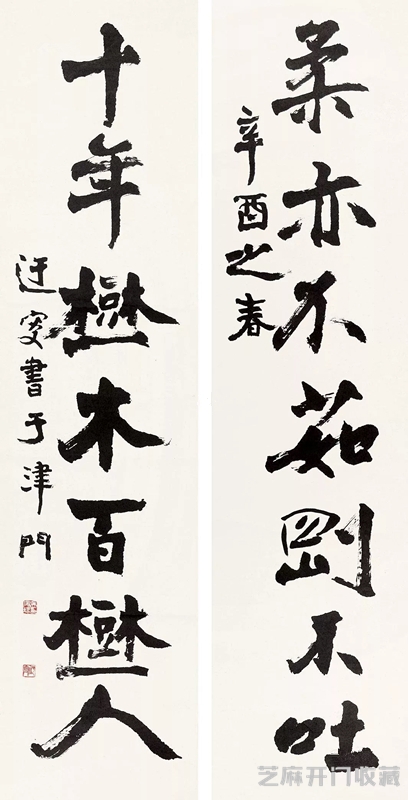 柔亦不茹剛不吐
辛酉之春
十年樹木百樹人
迂叟書于津門
芝麻开门收藏